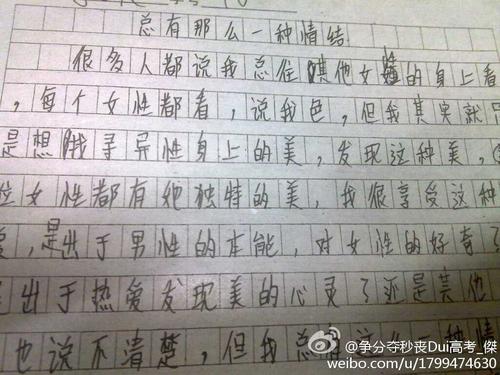 总有那么一种情结
很多人都说我总往其他女性的身上看
，每个女性都看，说我色，但我其实就
是想找寻异性身上的美，发现这种美，
位女性都有她独特的美，我很享受这种
，是出于男性的本能，对女性的好奇
出于热爱发现美的心灵了还是其他
也说不清楚，但我总有这么一种情
@争分夺秒丧Dui高考_傑
weibo.com/u/1799474630